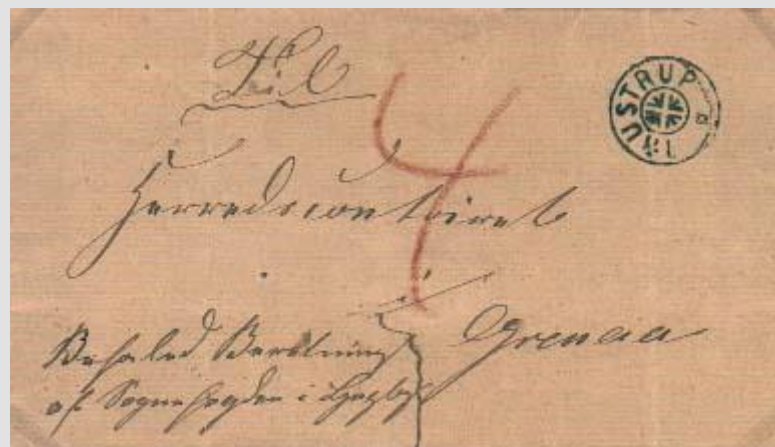 Til
TRUSTRUP
4
Herredscontoiret
i
Grenaa
Befaled Beretning
af Sognefogden i Lyngby